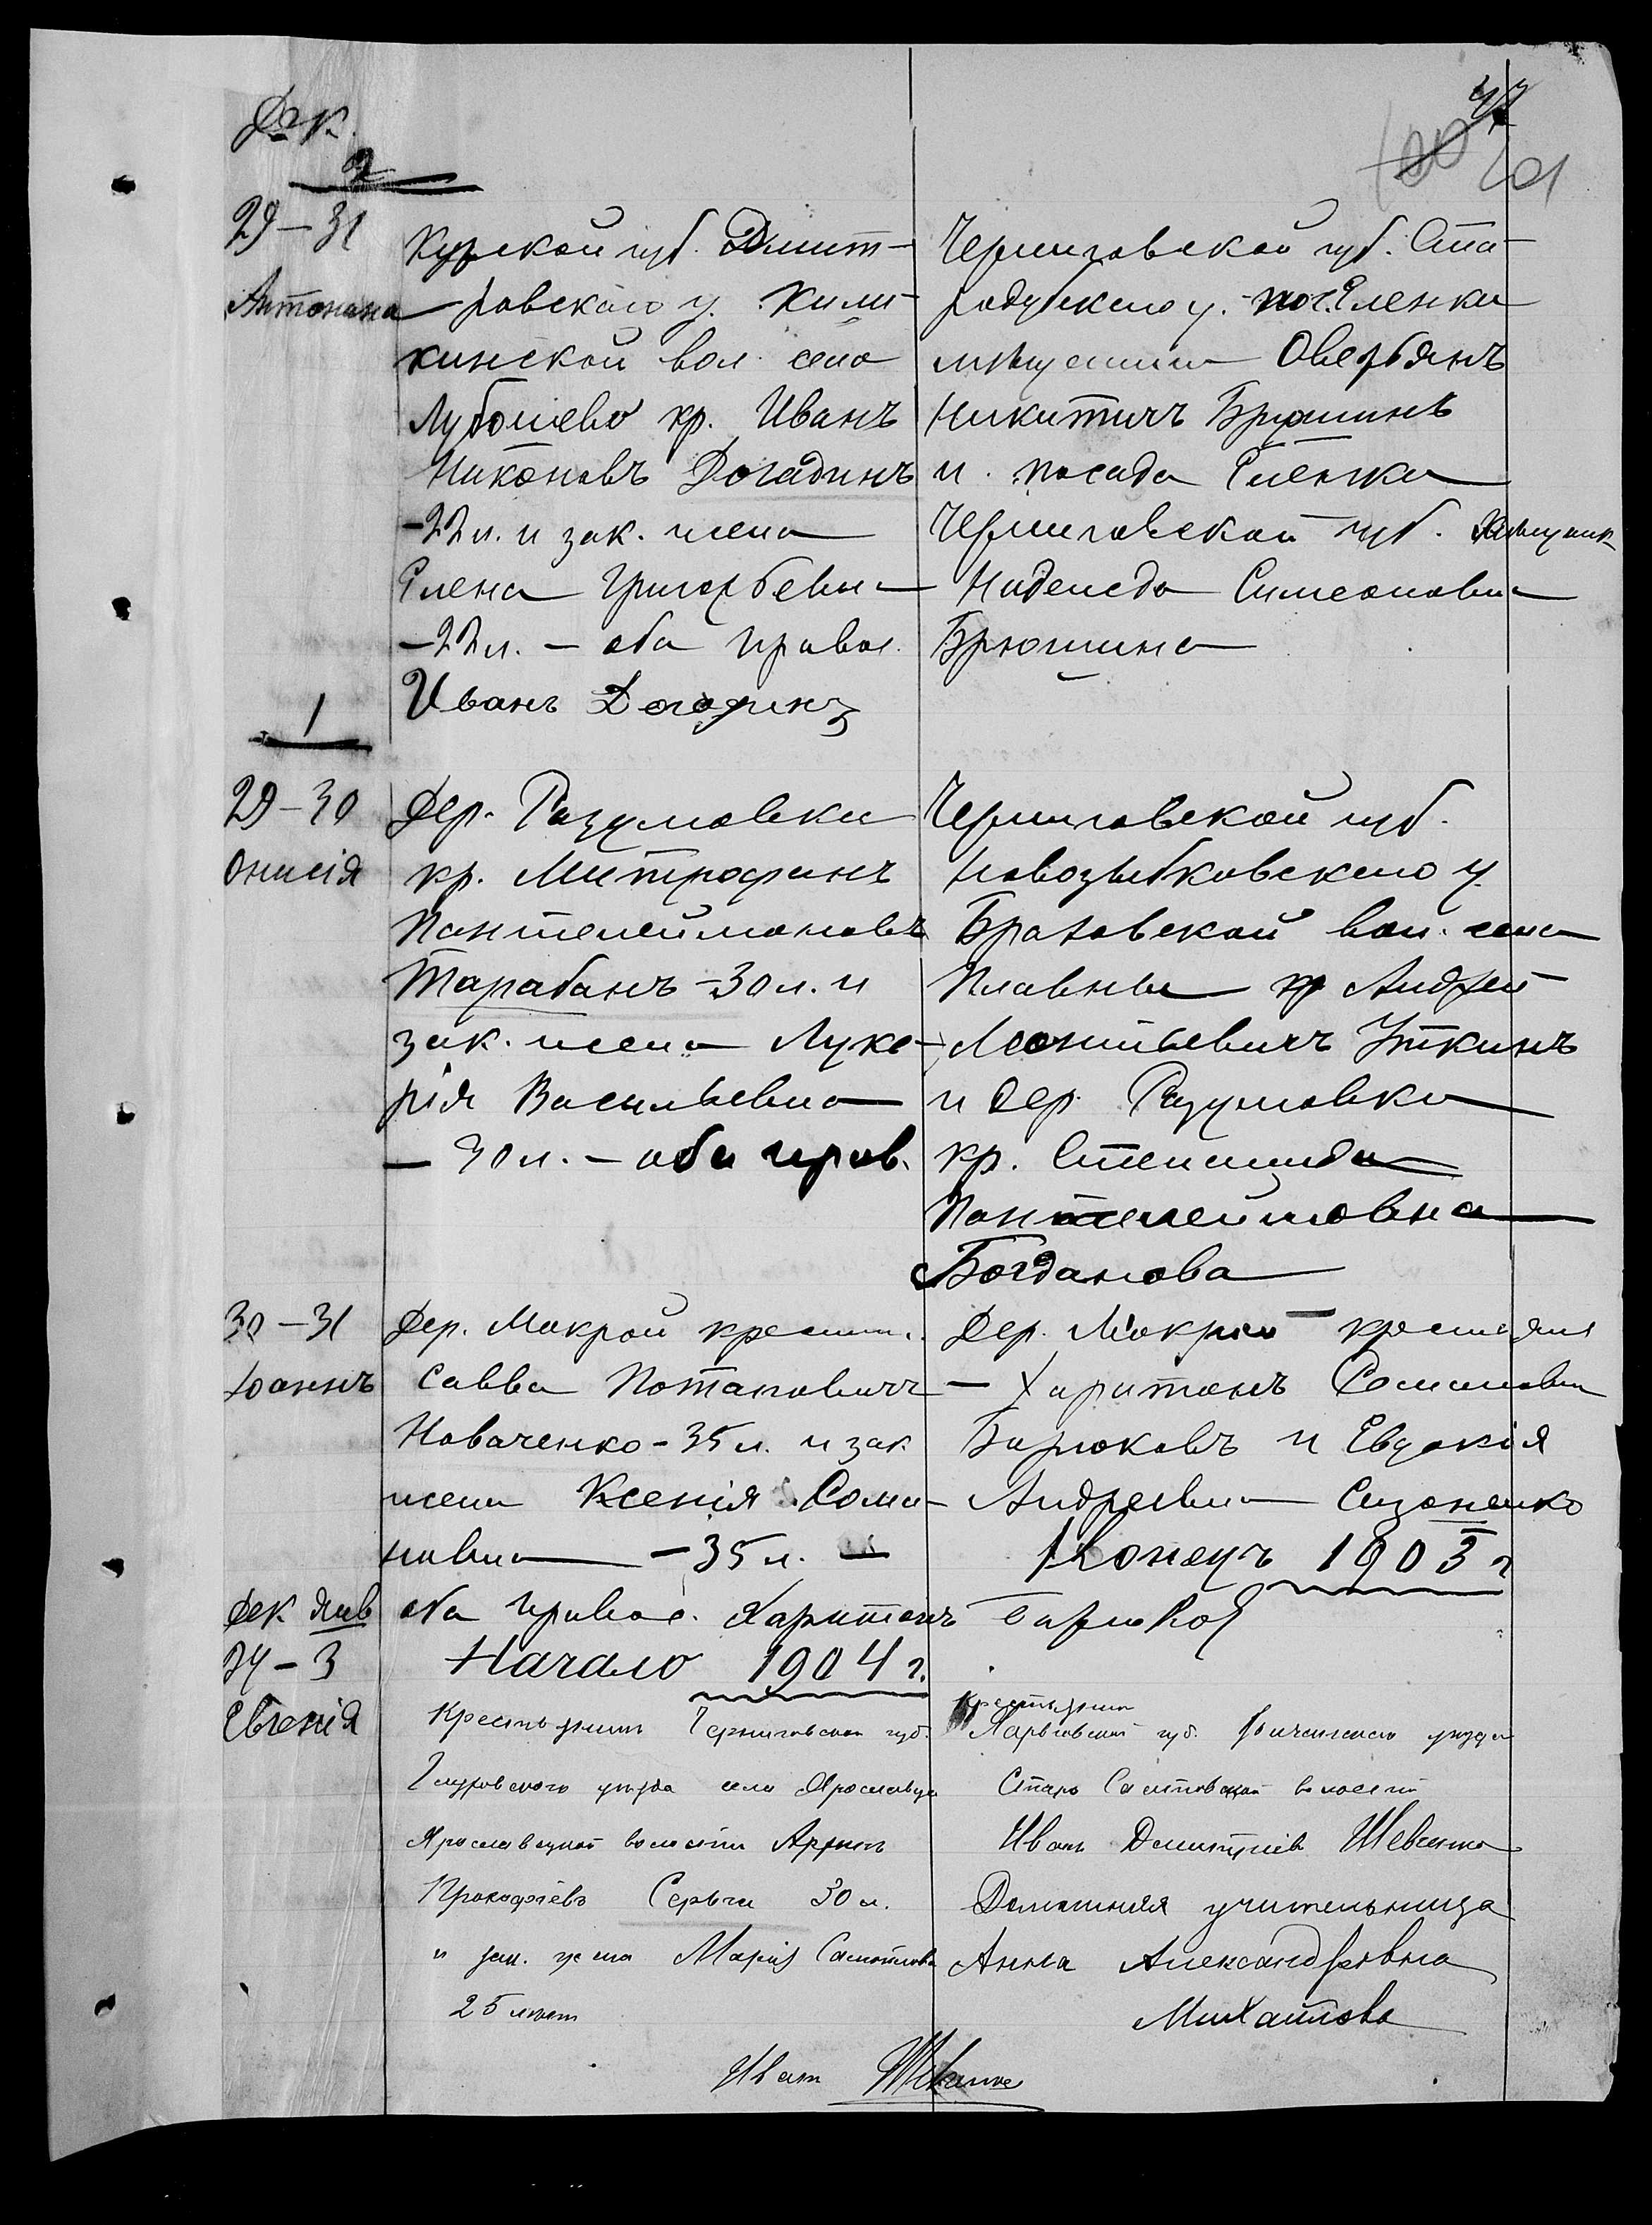 Дек.
47
100 101
2
29-31
Антонина
Курской губ. Дмит-
ровскаго у. Хили-
кинской вол. села
Лубошево кр. Иванъ
Никоновъ Догадинъ
-22 л. и зак. жена
Елена Григорьевна
-22 л. - оба правос.
Иванъ Догадинъ
Черниговской губ. Ста-
родубскаго у. пос. Еленка
мѣщанинъ Оверьянъ
Никитичъ Брюшинъ
и посада Еленка
Черниговской губ.
Надежда Симеоновна
Брюшина
1
29-30
Онисія
Дер. Разумовки
кр. Митрофанъ
Пантелеймоновъ
Тарабанъ -30 л. и
зак. жена Луке-
рія Васильевна
- 30 л. - оба прав.
Черниговской губ.
Новозыбковскаго у.
Браховской вол. села
Плавны кр Андрей
Леонтьевичъ Уткинъ
и дер. Разумовки
кр. Степанида
Пантелеймовна
Богданова
30-31
Іоаннъ
Дер. Мокрой крестьян.
Савва Потаповичъ
Новаченко - 35 л. и зак
жена Ксенія Сома-
новна - 35 л. -
оба правос. Харитонъ Бирюков
Дер. Мокрой крестьяне
- Харитонъ Семеновичъ
Бирюковъ и Евдокія
Андреевна Сизоненко
Конецъ 1903 г
Дек Янв
24-3
Евгенія
Начало 1904 г.
Крестьянинъ Черниговской губ.
Глуховского уѣзда села Ярославца
Ярославецкой волости
Прокофіевъ 30 л.
и зак. жена Марія Самойлова
25 лѣтъ
Крестьянинъ
Харьковской губ. Волчанского уѣзда
Старо Салтовской волости
Иванъ Дмитріевъ Шевченко
Домашняя учительница
Анна Александровна
Михайлова
Иванъ Шевченко